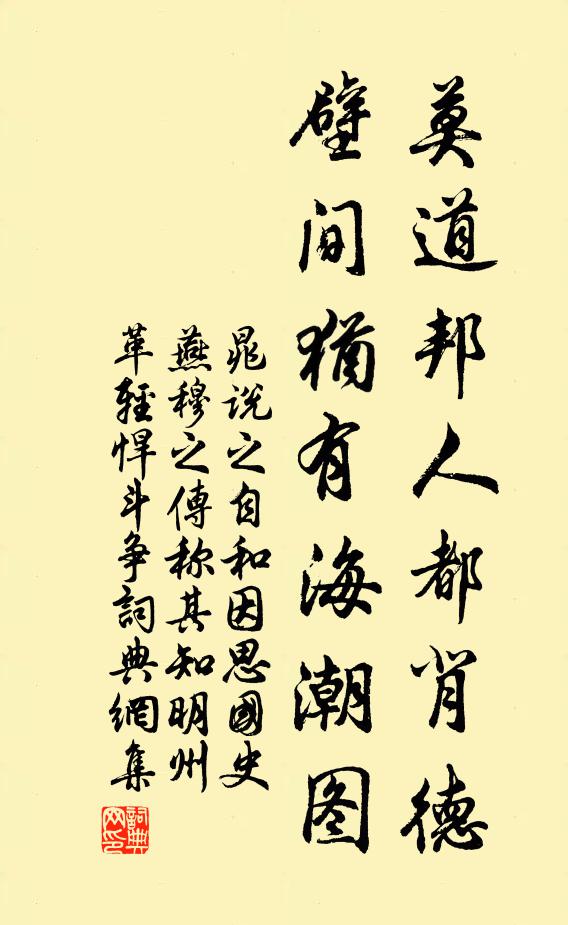 莫道邦人都背德
壁间猶有海潮图
晁説之自和因思國史
燕穆之傳称其知明州
革輕悍斗争詞典網集
詞典网印